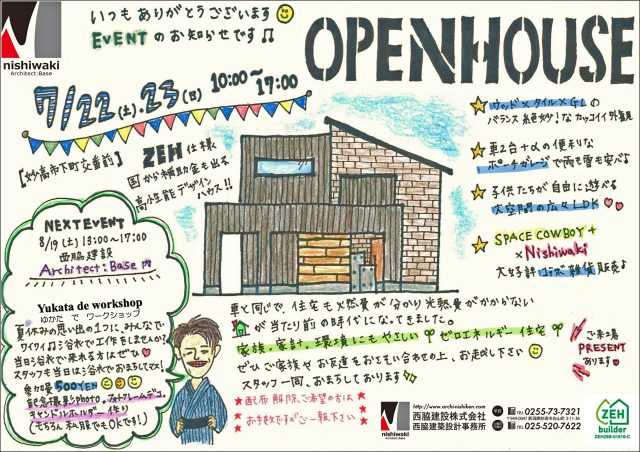 nishiwaki
Architect:Base
いつもありがとうございます
EVENTのお知らせです♫
OPENHOUSE
7/22(土).23(日) 10:00~17:00
【妙高市下町交番前】
ZEH仕様
国から補助金も出る
高性能デザイン
ハウス!!
★ウッド×タイル×GLの
バランス絶妙!なカッコイイ外観
★車2台+αの便利な
ポーチガレージで雨も雪も安心♪
★子供たちが自由に遊べる
大空間の広々LDK♡♥
★SPACE COWBOY+
×Nishiwaki
大好評コラボ雑貨販売♪
NEXT EVENT
8/19(土)13:00~17:00
西脇建設
Architect:Base内
Yukata de workshop
ゆかた で ワークショップ
夏休みの思い出の1つに、みんなで
ワイワイ♫浴衣でエイ作をしませんか?
当日浴衣で来れる方はぜひ♥
スタッフも当日は浴衣でおまちしてマス!
参加費500YEN
記念撮影&photo,フォトフレームデコ、
キャンドルホルダー作り
(もちろん私服でもOKです!)
車と同じで、住宅も火燃費が分かり光熱費がかからない
が当たり前の時代になってきました。
家族、家計、環境にもやさしい ゼロエネルギー住宅
ぜひご家族やお友達をおさそい合わせの上、お越し下さい
スタッフ一同、おまちしております
★配布解除、ご希望の方は
お手数ですがご一報下さい★
ご来場
PRESENT
あります♥
nishiwaki
Architect:Base
http://www.archinishiken.com
西脇建設株式会社
西脇建築設計事務所
TEL 0255-73-7321
FAX 025-520-7622
ZEH
builder
ZEH28B-01818-C